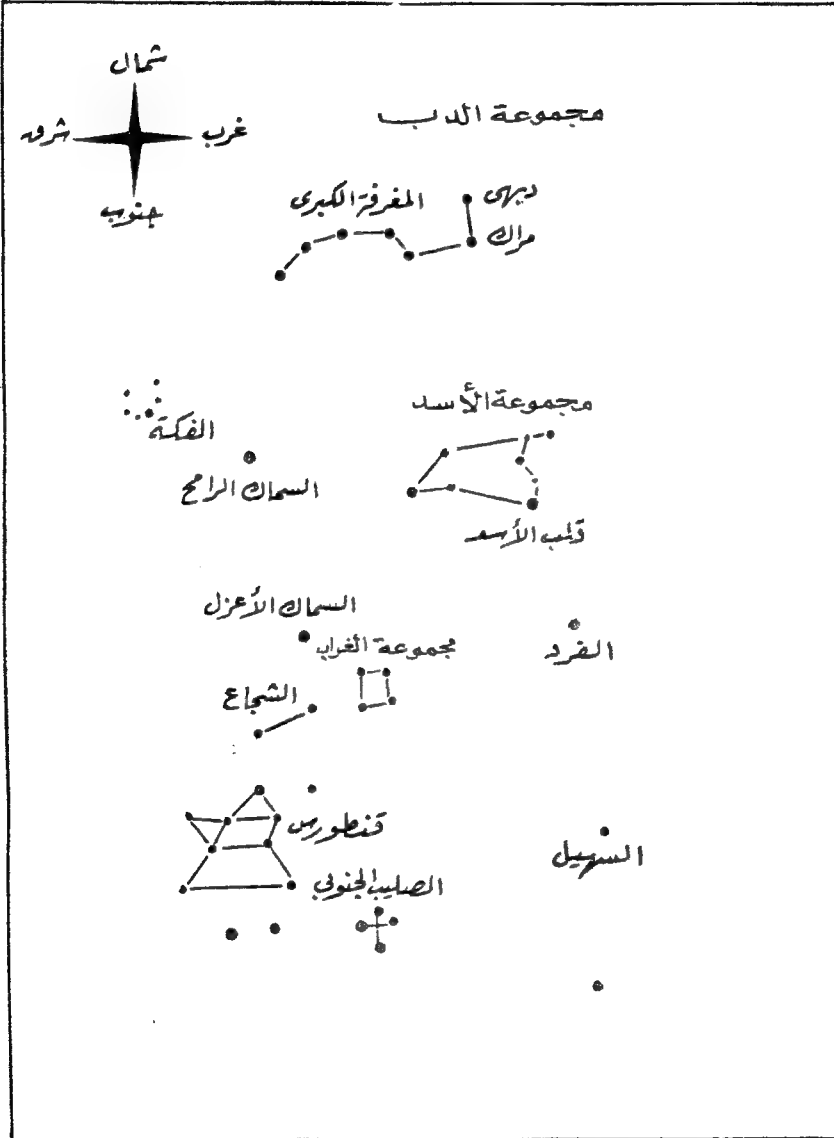 شمال
مجموعة الدب
شرق
غرب
جنوب
دبهى
المغرفة الكبرى
مراك
مجموعة الأسد
الفكة
السماك الرامح
قلب الأسد
السماك الأعزل
مجموعة الغراب
الفرد
الشجاع
قنطورس
السهيل
الصليب الجنوبي